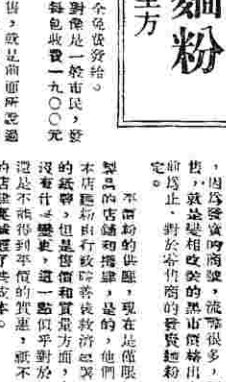 麵粉
主方
全免費發給。
對像是一般市民，發
每包收費一九〇〇元
售，就是前面所說過
，因爲發賣的商號，流弊很多，
售，就是變相改裝的黑市價格出
前爲止，對於零售商的發賣麵粉
定。
平價粉的供應，現在是僅限
製品的店鋪和攤肆，是的，他們
本店麵粉由行政院善後救濟總署
的紙聯，但是售價和質量方面，
沒有什麼變更，這一點似乎對於
還是不能得到平價的實惠，祇不
的店